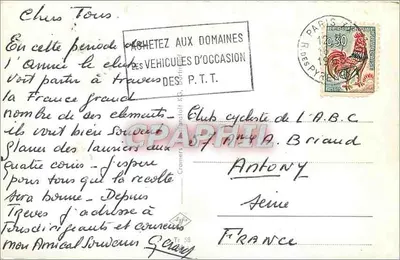 Chers Tous
En cette période de
l'Année le club
voit partir a travers
la France grand
nombre de ses elements -
ils vont bien souvent
glaner des lauriers aux
quatre coins - j'espere
pour tous que la recolte
sera bonne - Depuis
Treves j'adresse à
Tous dirigeants et coureurs
mon Amical Souvenir Gerard
ACHETEZ AUX DOMAINES
LES VEHICULES D'OCCASION
DES P.T.T.
PARIS
R. DES PY
0,30
Club cycliste de L'A.B.C
37 Ave A. Briand
Antony
Seine
FRANCE